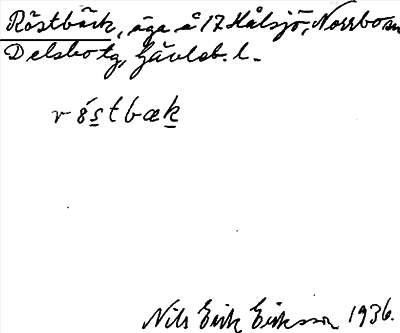 Röstbäck, äga å 17 Hålsjö, Norrbo sn
Delsbo tg, Gävleb. l.
röstbæk
Nils Erik Eriksson 1936.